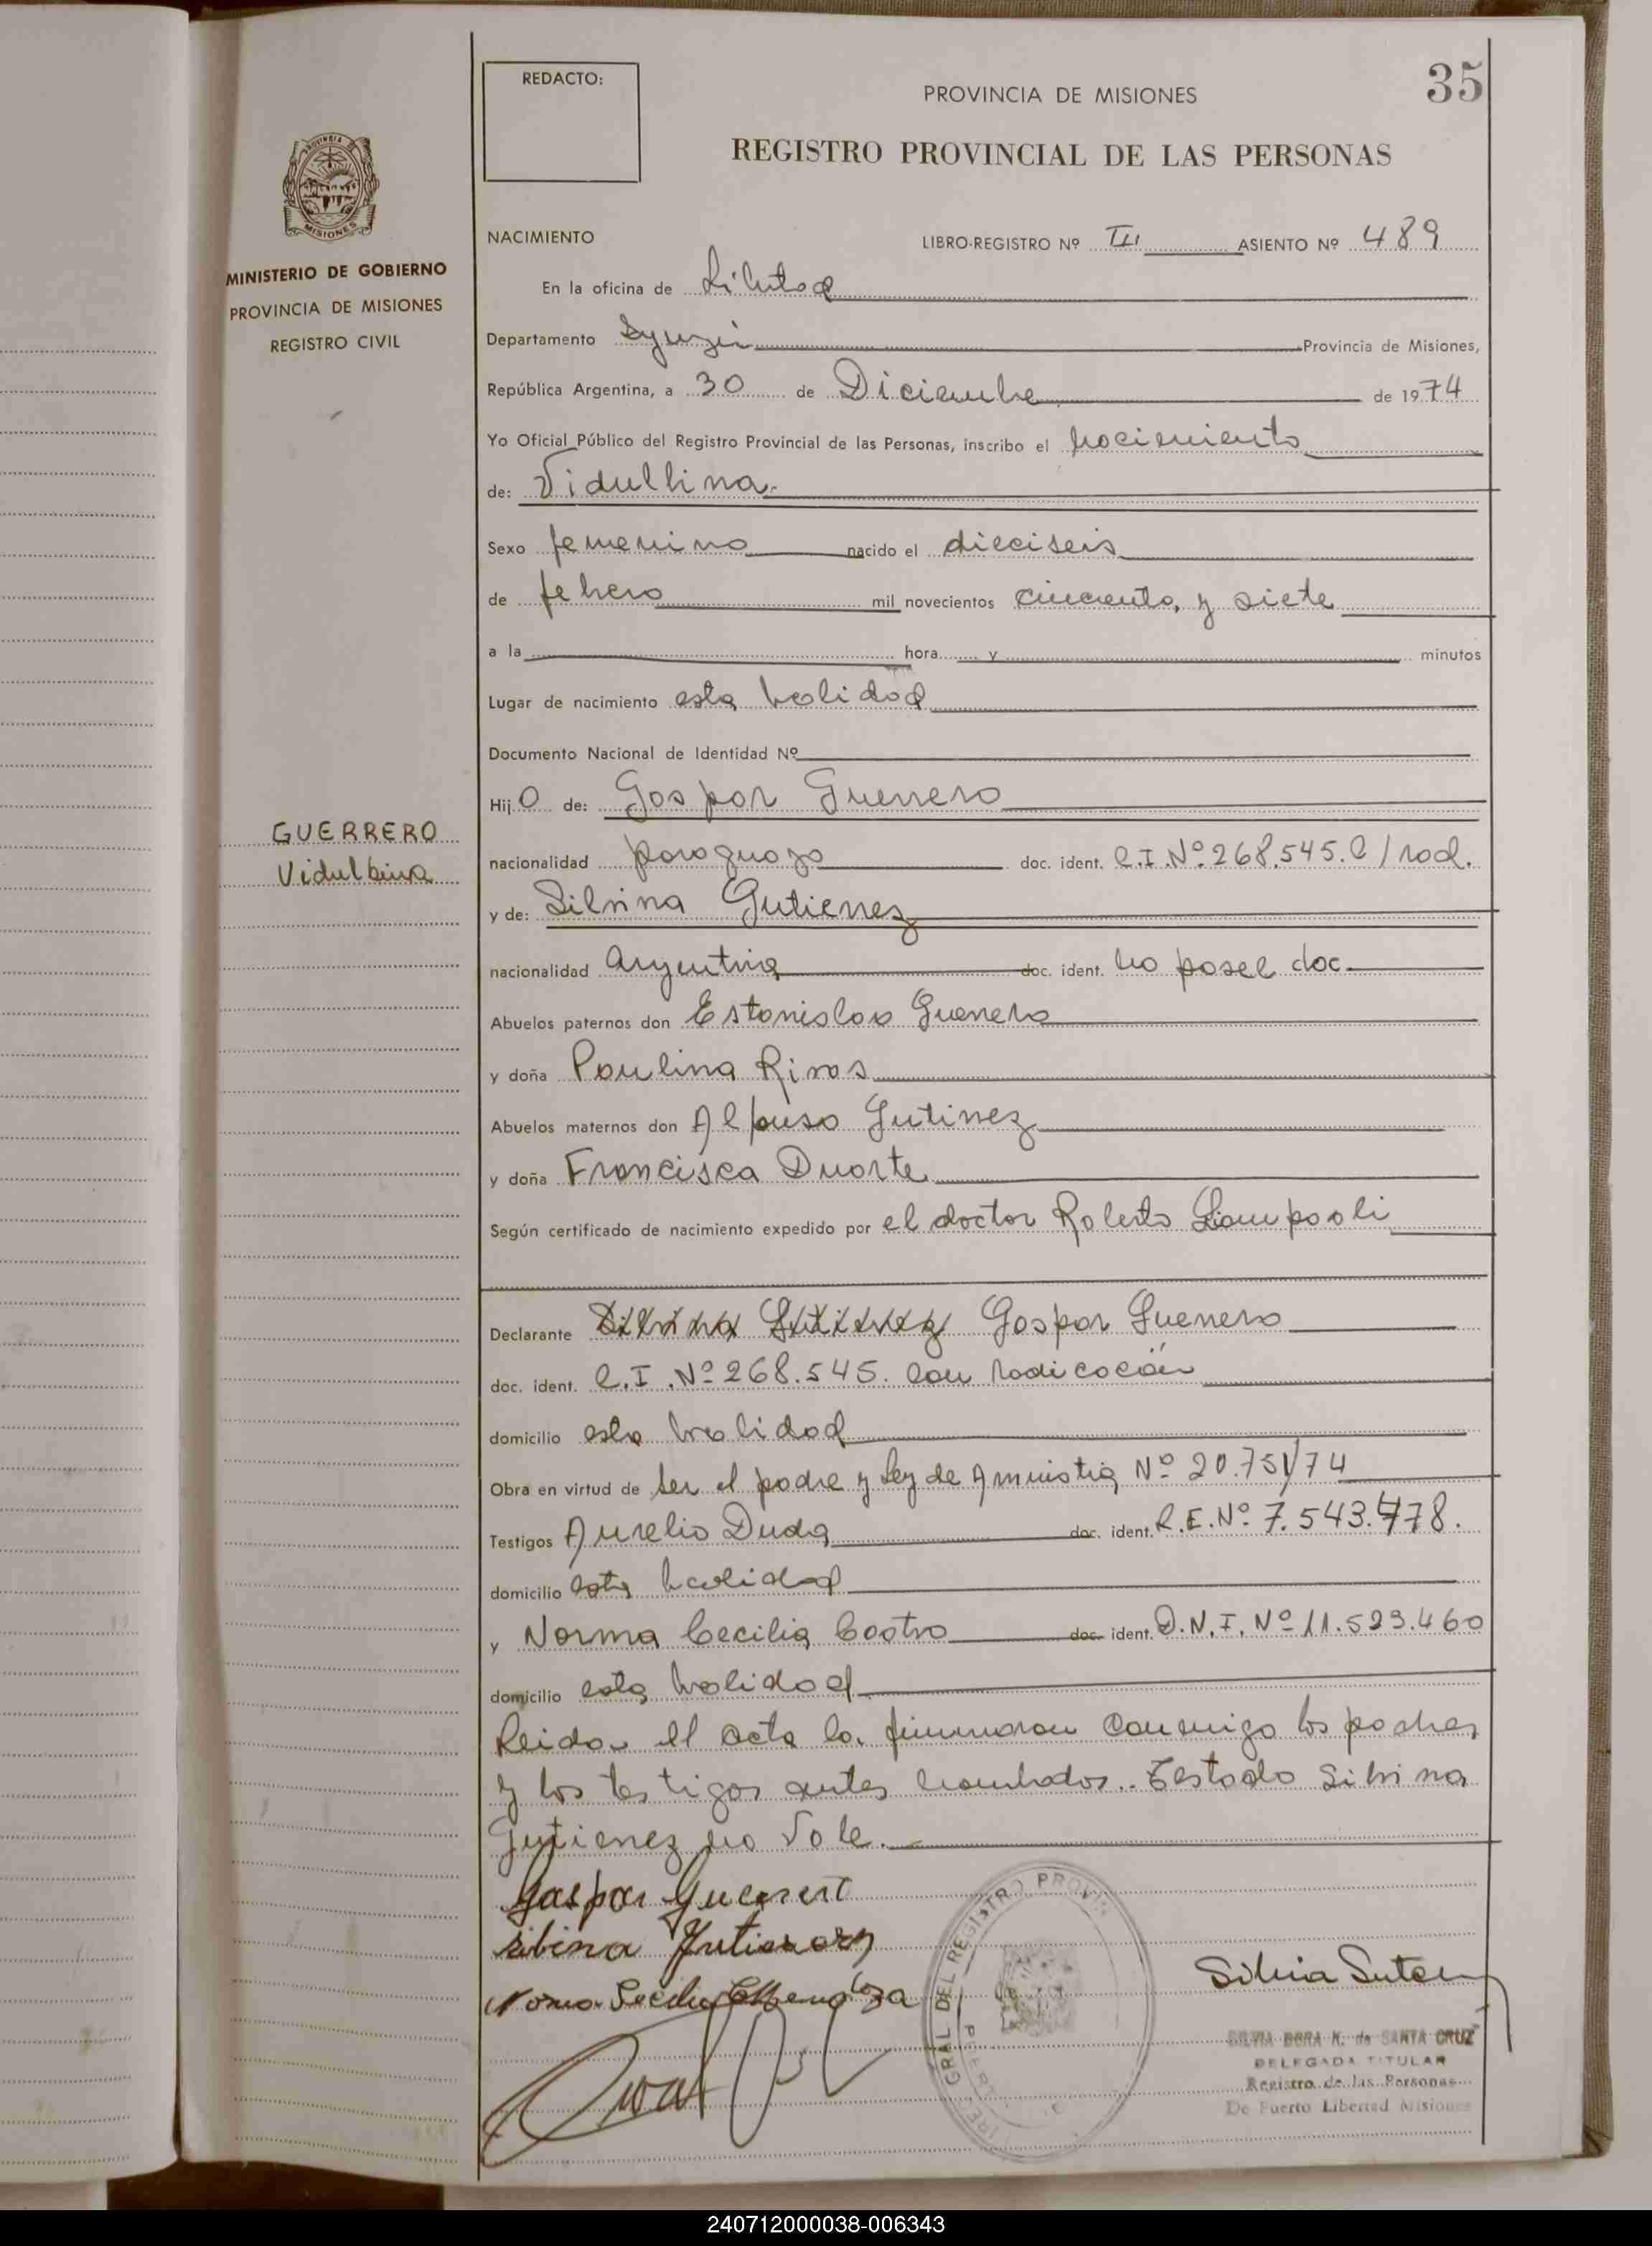 35
REDACTO:
PROVINCIA DE MISIONES
REGISTRO PROVINCIAL DE LAS PERSONAS
PROVINCIA
MISIONES
MINISTERIO DE GOBIERNO
PROVINCIA DE MISIONES
REGISTRO CIVIL
NACIMIENTO LIBRO-REGISTRO Nº III ASIENTO Nº 489
En la oficina de Libertad
Departamento Iguazú Provincia de Misiones,
República Argentina, a 30 de Diciembre de 1974
Yo Oficial Público del Registro Provincial de las Personas, inscribo el nacimiento
de: Vidulbina.
Sexo femenino nacido el dieciseis
de febrero mil novecientos cincuenta y siete
a la hora y minutos
Lugar de nacimiento esta localidad
Documento Nacional de Identidad Nº
Hij O de: Gaspar Guerrero
GUERRERO
Vidulbina
nacionalidad paraguayo doc. ident. C.I.Nº 268.545.C/rad.
y de: Silvina Gutierrez
nacionalidad Argentina doc. ident. no posee doc.
Abuelos paternos don Estanislao Guerrero
y doña Paulina Rivas
Abuelos maternos don Alfonso Gutirrez
y doña Francisca Duarte
Según certificado de nacimiento expedido por el doctor Roberto
Declarante Silvina Gutierrez Gaspar Guerrero
doc. ident. C.I.Nº 268.545. con radicación
domicilio esta localidad
Obra en virtud de ser el padre y Ley de Amnistia Nº 20.751/74
Testigos Aurelio Duda doc. ident. L.E.Nº 7.543.478.
domicilio esta localidad
y Norma Cecilia Castro doc. ident. D.N.I. Nº 11.523.460
domicilio esta localidad
Leida el acta la firmaron conmigo los padres
y los testigos antes nombrados. Testado Silvina
Gutierrez no Vale.
Gaspar Guerrero
Silvina Gutierrez
GRAL DEL REGISTRO PROVIN
SILVIA DORA N. de SANTA CRUZ
DELEGADA TITULAR
Registro de las Personas
De Puerto Libertad Misiones
240712000038-006343